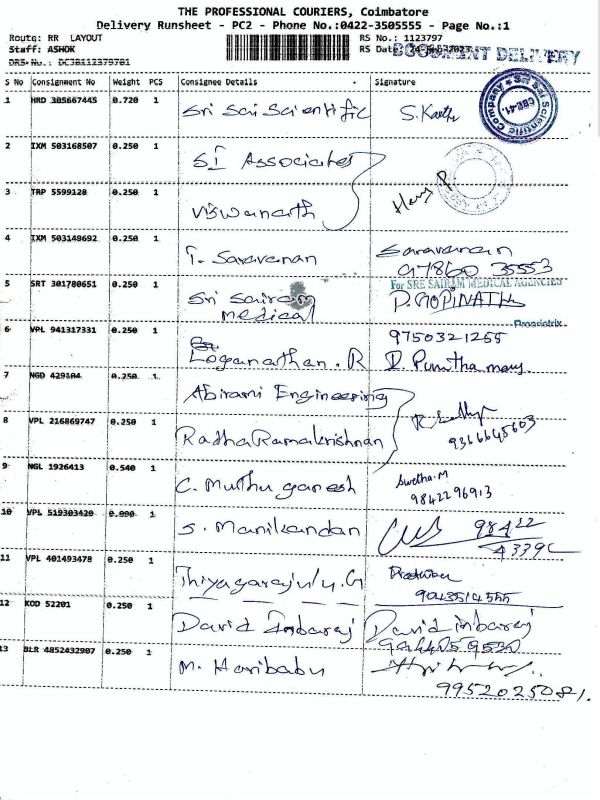 THE PROFESSIONAL COURIERS, Coimbatore
Delivery Runsheet - PC2 - Phone No.:0422-3505555 - Page No.:1
Route: RR LAYOUT
RS No.: 1123797
Staff: ASHOK
RS Date:
DOCUMENT DELIVERY
DRS No.:
S No Consignment No Weight PCS Consignee Details Signature
1 HRD 305667445 0.720 1 Sri Sai Scientific S. Karthi
2 IXM 503168507 0.250 1 SI Associates
3 TRP 5599128 0.250 1 Viswanath
4 IXM 503149692 0.250 1 T. Saravanan Saravanan
97860 35553
5 SRT 301780651 0.250 1 Sri Sairam For SRE SAIRAM MEDICAL AGENCIES
medical P. GOPINATH
Proprietrix
6 VPL 941317331 0.250 1 9750321255
Loganathan. R I. Punitha mary
7 NGD 429104 0.250 1 Abirami Engineering
8 VPL 216869747 0.250 1 RadhaRamakrishnan
9366645603
9 NGL 1926413 0.540 1 C. Muthu ganesh Swetha.M
9842296913
10 VPL 519303420 0.090 1 S. Manikandan 98422
11 VPL 401493478 0.250 1 Thiyagarajulu.G
9043514555
12 KOD 52201 0.250 1 David Inbaraj David inbaraj
13 BLR 4852432907 0.250 1 M. Haribabu
9952025081.